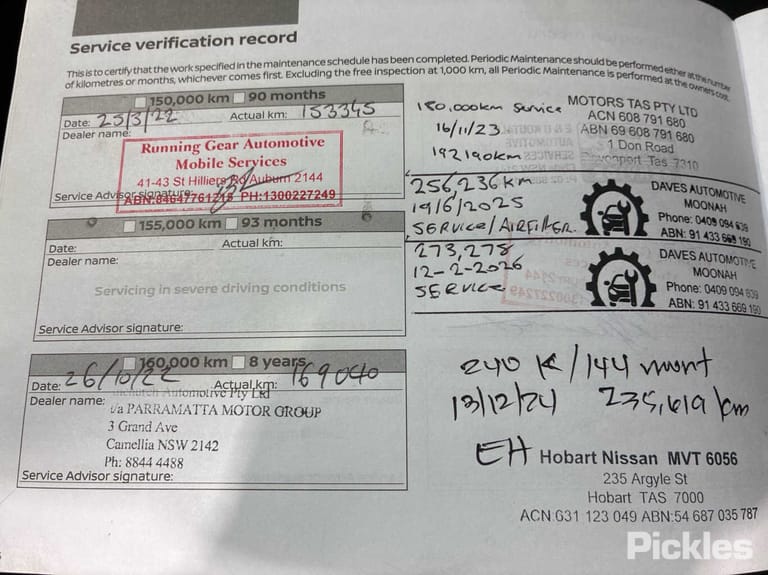 Service verification record
This is to certify that the work specified in the maintenance schedule has been completed. Periodic Maintenance should be performed either at the number
of kilometres or months, whichever comes first. Excluding the free inspection at 1,000 km, all Periodic Maintenance is performed at the owners cost.
150,000 km 90 months
Date: 25/3/22 Actual km: 153345
Dealer name:
Running Gear Automotive
Mobile Services
41-43 St Hilliers Rd Auburn 2144
Service Advisor signature:
ABN:84647761215 PH:1300227249
155,000 km 93 months
Date: Actual km:
Dealer name:
Servicing in severe driving conditions
Service Advisor signature:
160,000 km 8 years
Date: 26/10/22 Actual km: 169040
Automotive Pty Ltd
Dealer name:
t/a PARRAMATTA MOTOR GROUP
3 Grand Ave
Camellia NSW 2142
Ph: 8844 4488
Service Advisor signature:
180,000km Service
16/11/23
192190km
MOTORS TAS PTY LTD
ACN 608 791 680
ABN 69 608 791 680
1 Don Road
Devonport Tas 7310
256,236km
19/6/2025
SERVICE/AIRFILTER.
DAVES AUTOMOTIVE
MOONAH
Phone: 0409 094 639
ABN: 91 433 669 190
273,278
12-2-2026
SERVICE
DAVES AUTOMOTIVE
MOONAH
Phone: 0409 094 639
ABN: 91 433 669 190
240 K/144 mont
13/12/24 235,619 km
EH Hobart Nissan MVT 6056
235 Argyle St
Hobart TAS 7000
ACN:631 123 049 ABN:54 687 035 787
Pickles